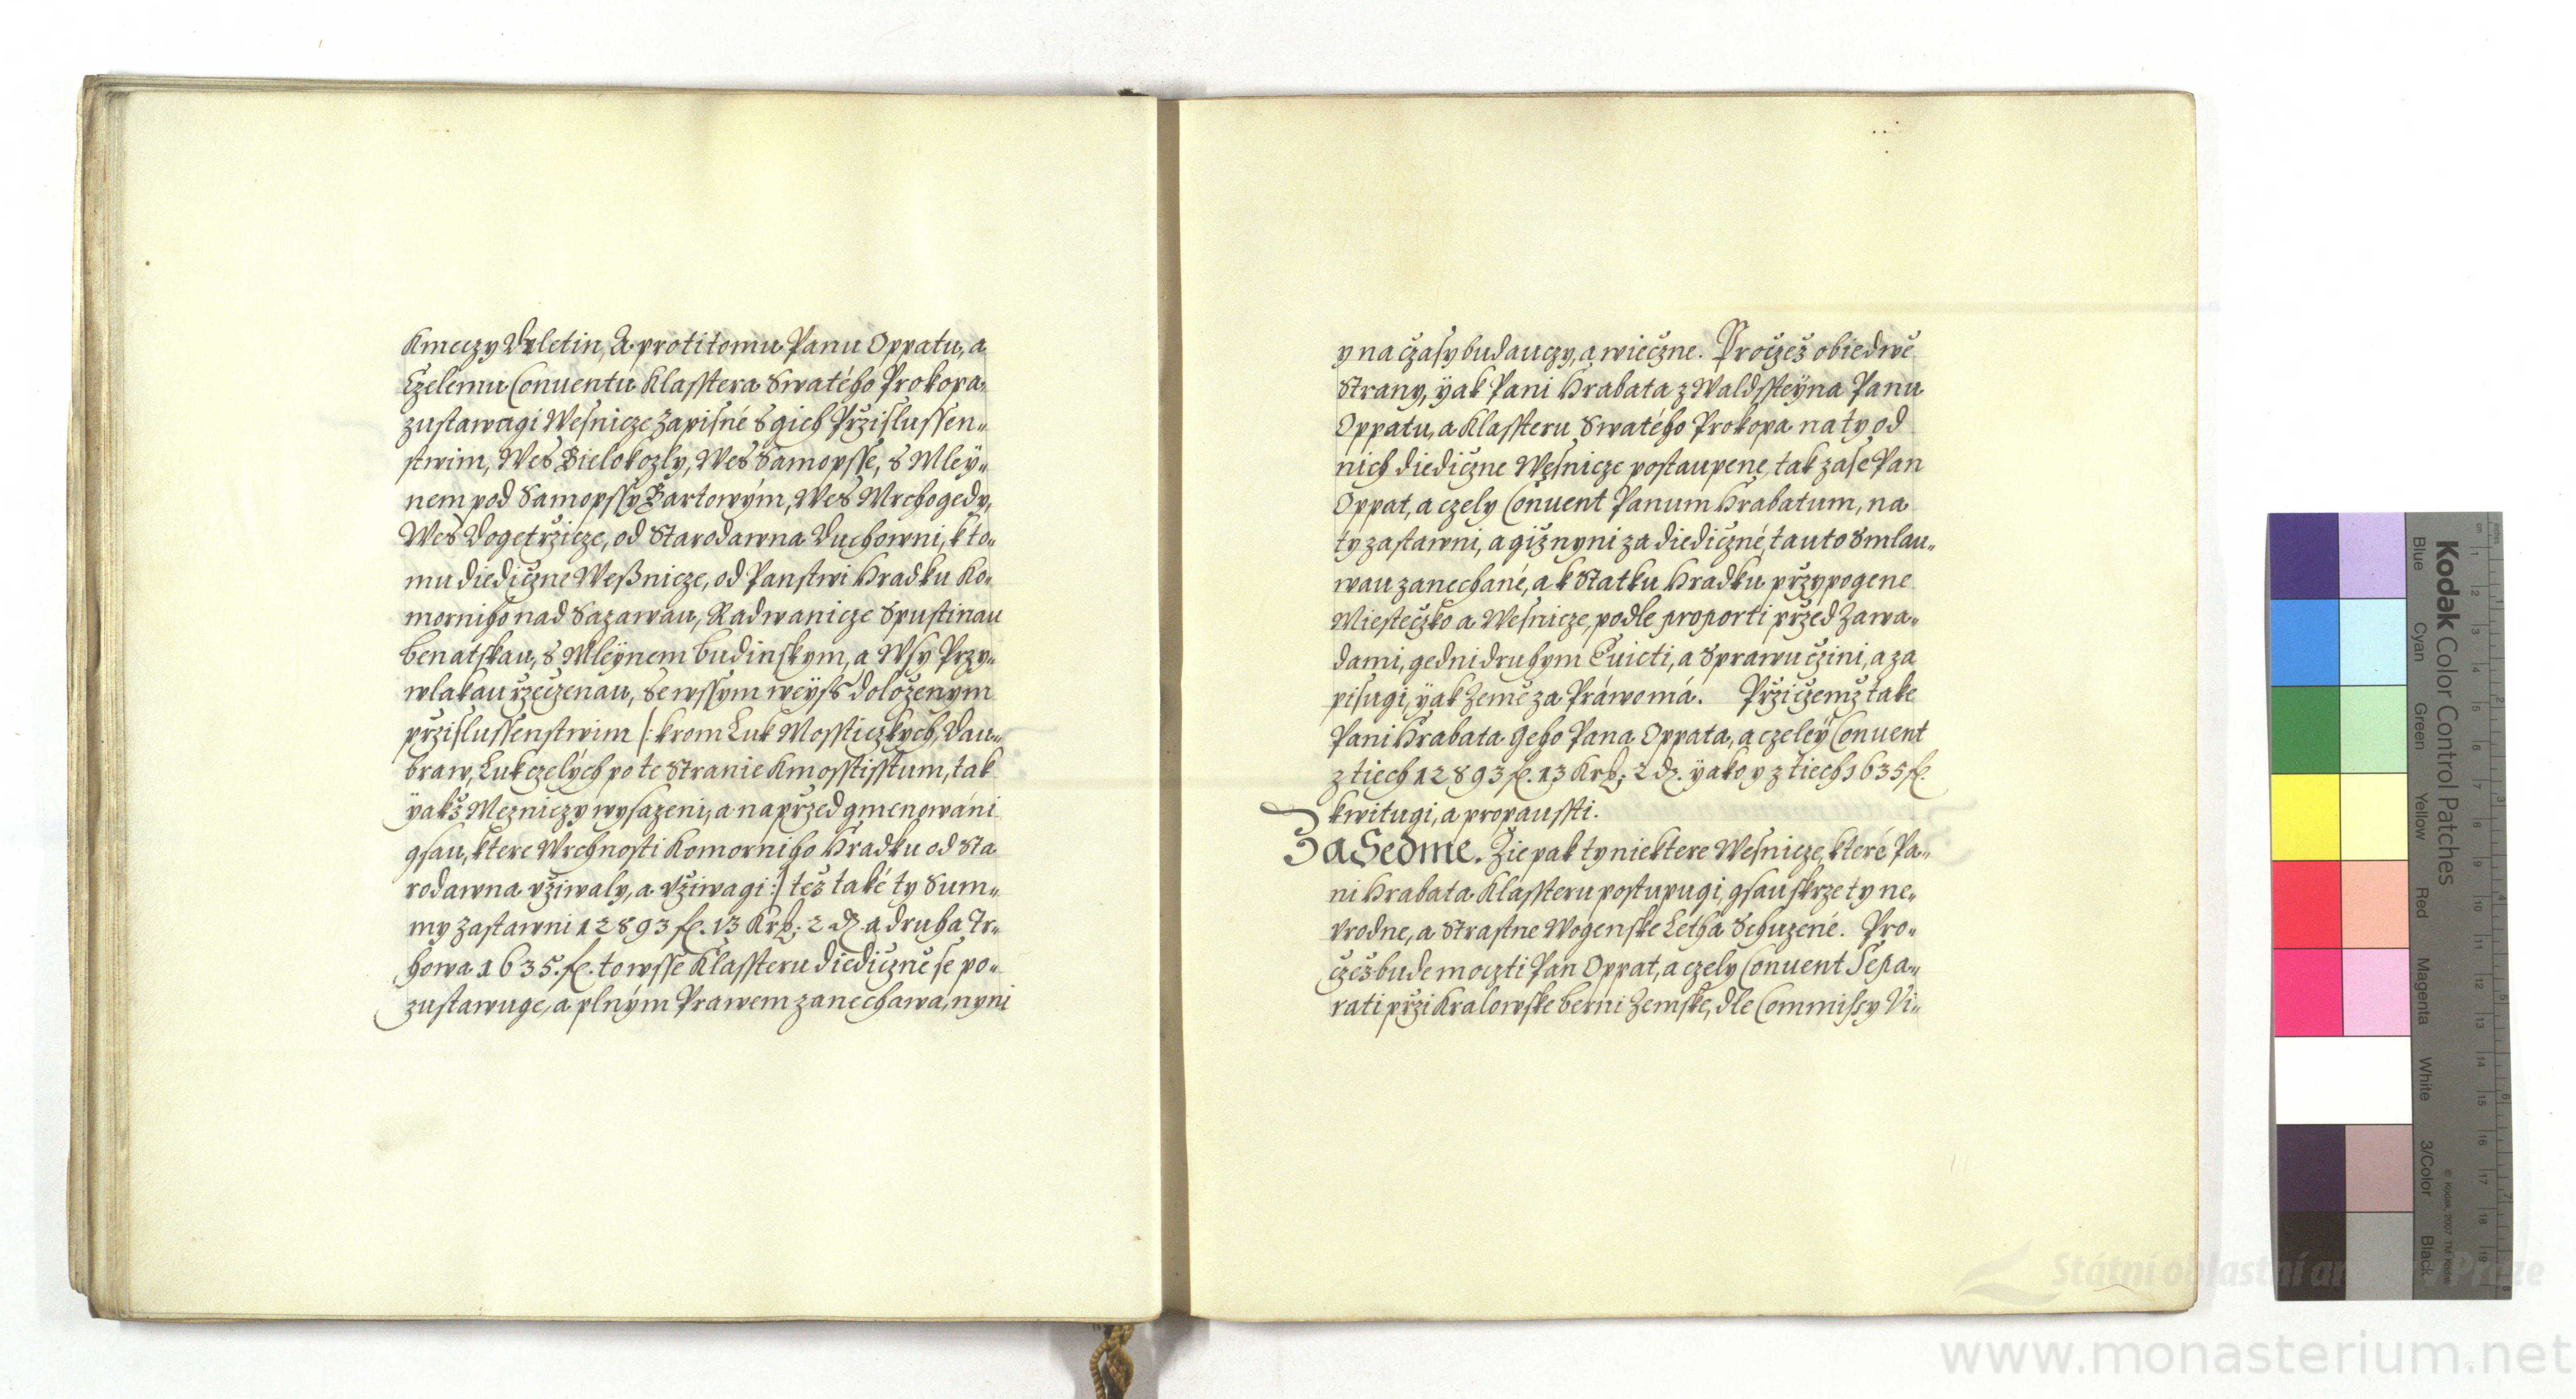 Kmeczy Vrletin, A protitomu Panu Oppatu, a
Czelemu Conuentu Klasstera Swatého Prokopa
zustawagi Wesnicze Zapisné s gich Przislussen„
stwim, Wes Bielokozly, Wes Samopsse, s Mley„
nem pod Samopssy Bartowým, Wes Mrchogedy,
Wes Dogetržicze, od Starodawna Duchowni, k to„
mu diediczne Weßnicze, od Panstwi Hradku Ko„
morniho nad Sazawau, Radwanicze Spustinau
benatskau, s Mleÿnem budinskym, a Wsy Przy„
wlakau rzeczenau, Sewssym weyss doloženym
przislussenstwim /: krom Luk Mossticzkych, Dau„
braw, Luk czelých po te Stranie Kmosstisstum, tak
ÿakž Mezniczy wysazeni, a naprzed gmenowáni
gsau, ktere Wrchnosti Komorniho Hradku od Sta
rodawna vžiwaly, a Vžiwagi :/ též také ty Sum„
my Zastawni 12893 fl. 13 Krz. 2 d. a druha Tr„
howa 1635. fl. to wsse Klassteru diedicznė se po„
zustawuge, a plným Prawem zanechawa, nyni
y na czasy budauczy, a wieczne. Proczež obiedwe
Strany, ÿak Pani Hrabata z Waldssteÿna Panu
Oppatu, a Klassteru Swatého Prokopa na ty od
nich diediczne Wesnicze postaupene, tak zase Pan
Oppat, a czely Conuent Panum Hrabatum, na
ty zastawni, a giž nyni za diediczné, tauto Smlau„
wau zanechané, a k Statku Hradku przypogene
Miesteczko a Wesnicze, podle proporti przed Zawa„
dami, gedni druhym Euicti, a Sprawu czini, a za
pisugi, ÿak Zemė za Práwo má. Przicžemž take
Pani Hrabata Geho Pana Oppata, a czeleÿ Conuent
z tiech 12893 fl. 13 Krz. 2 d. ÿako y z tiech 1635 fl.
kwitugi, a propaussti.
Za Sedme. Žie pak ty niektere Wesnicze, které Pa„
ni Hrabata Klassteru postupugi, gsau skrze ty ne„
vrodne, a Strastne Wogenske Letha Schuzené. Pro„
czež bude moczti Pan Oppat, a czely Conuent Sepa„
rati przi Kralowske berni Zemske, dle Commissy Vi„
Kodak Color Control Patches
Blue Cyan Green Yellow Red Magenta White 3/Color Black
© Kodak, 2007 TM: Kodak
Státní oblastní archiv v Praze
www.monasterium.net